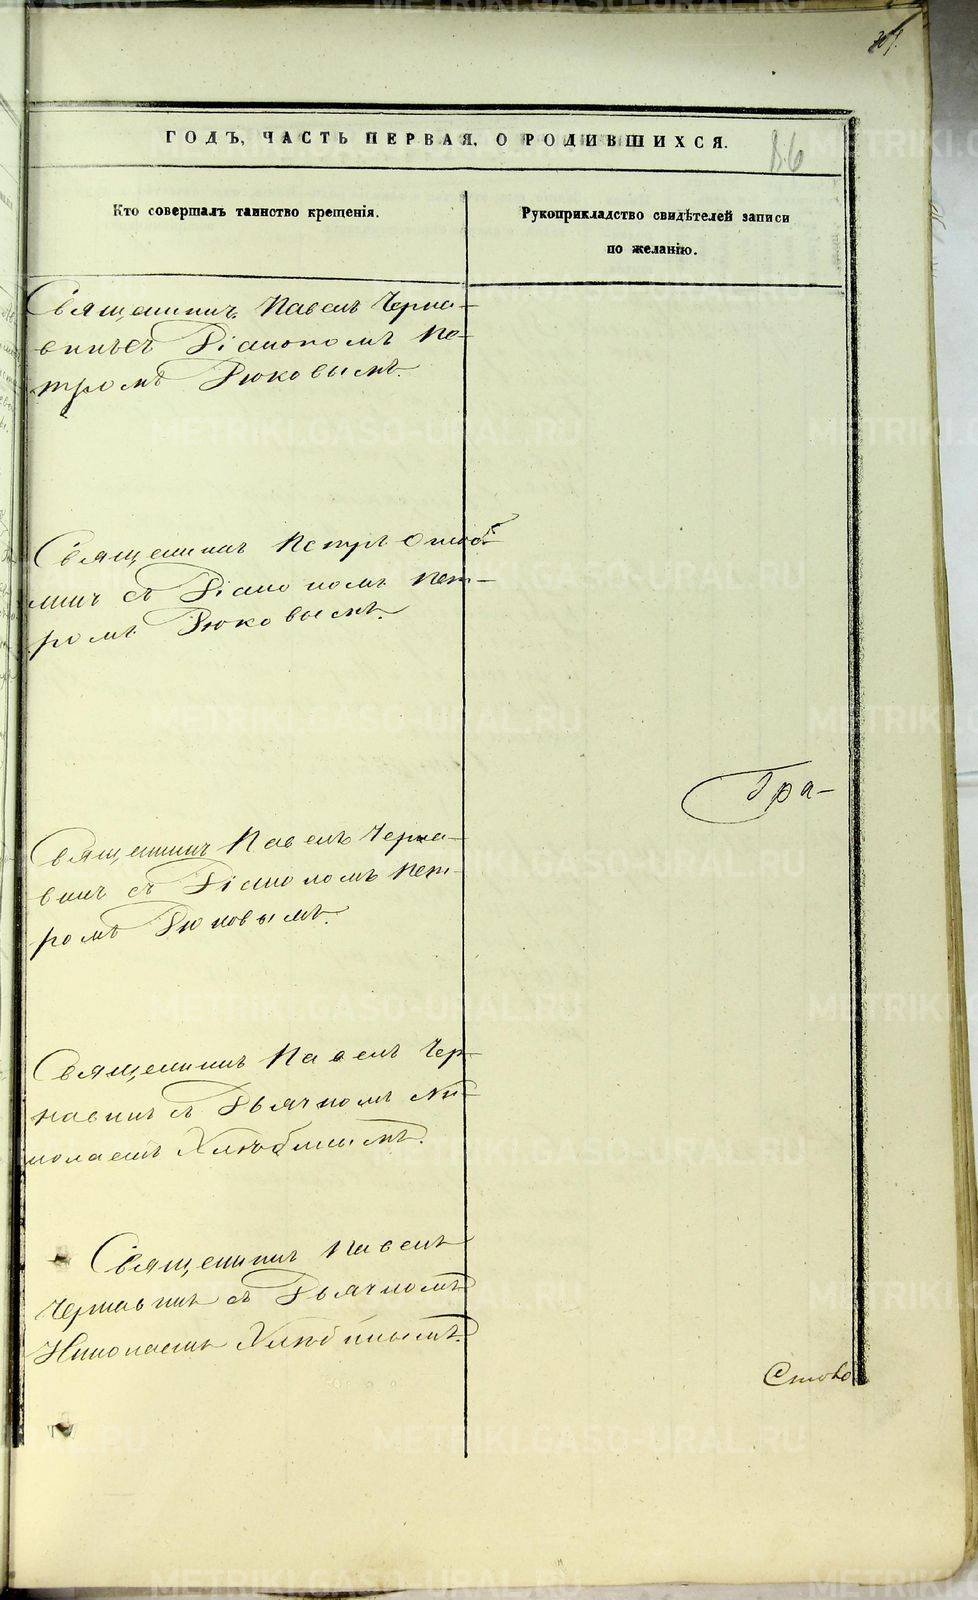 ГОДЪ, ЧАСТЬ ПЕРВАЯ, О РОДИВШИХСЯ.
86
Кто совершалъ таинство крещенія.
Рукоприкладство свидѣтелей записи
по желанію.
Священникъ Павелъ Черна-
винъ съ Діакономъ Пе-
тромъ Дюковымъ.
Священникъ Петръ
съ Діакономъ Пет-
ромъ Дюковымъ.
Гра-
Священникъ Павелъ Черна-
винъ съ Діакономъ Пет-
ромъ Дюковымъ.
Священникъ Павелъ Чер-
навинъ съ Дьячкомъ Ни-
колаемъ Хлѣбинымъ.
Священникъ Павелъ
Чернавинъ съ Дьячкомъ
Николаемъ Хлѣбинымъ.
METRIKI.GASO-URAL.RU